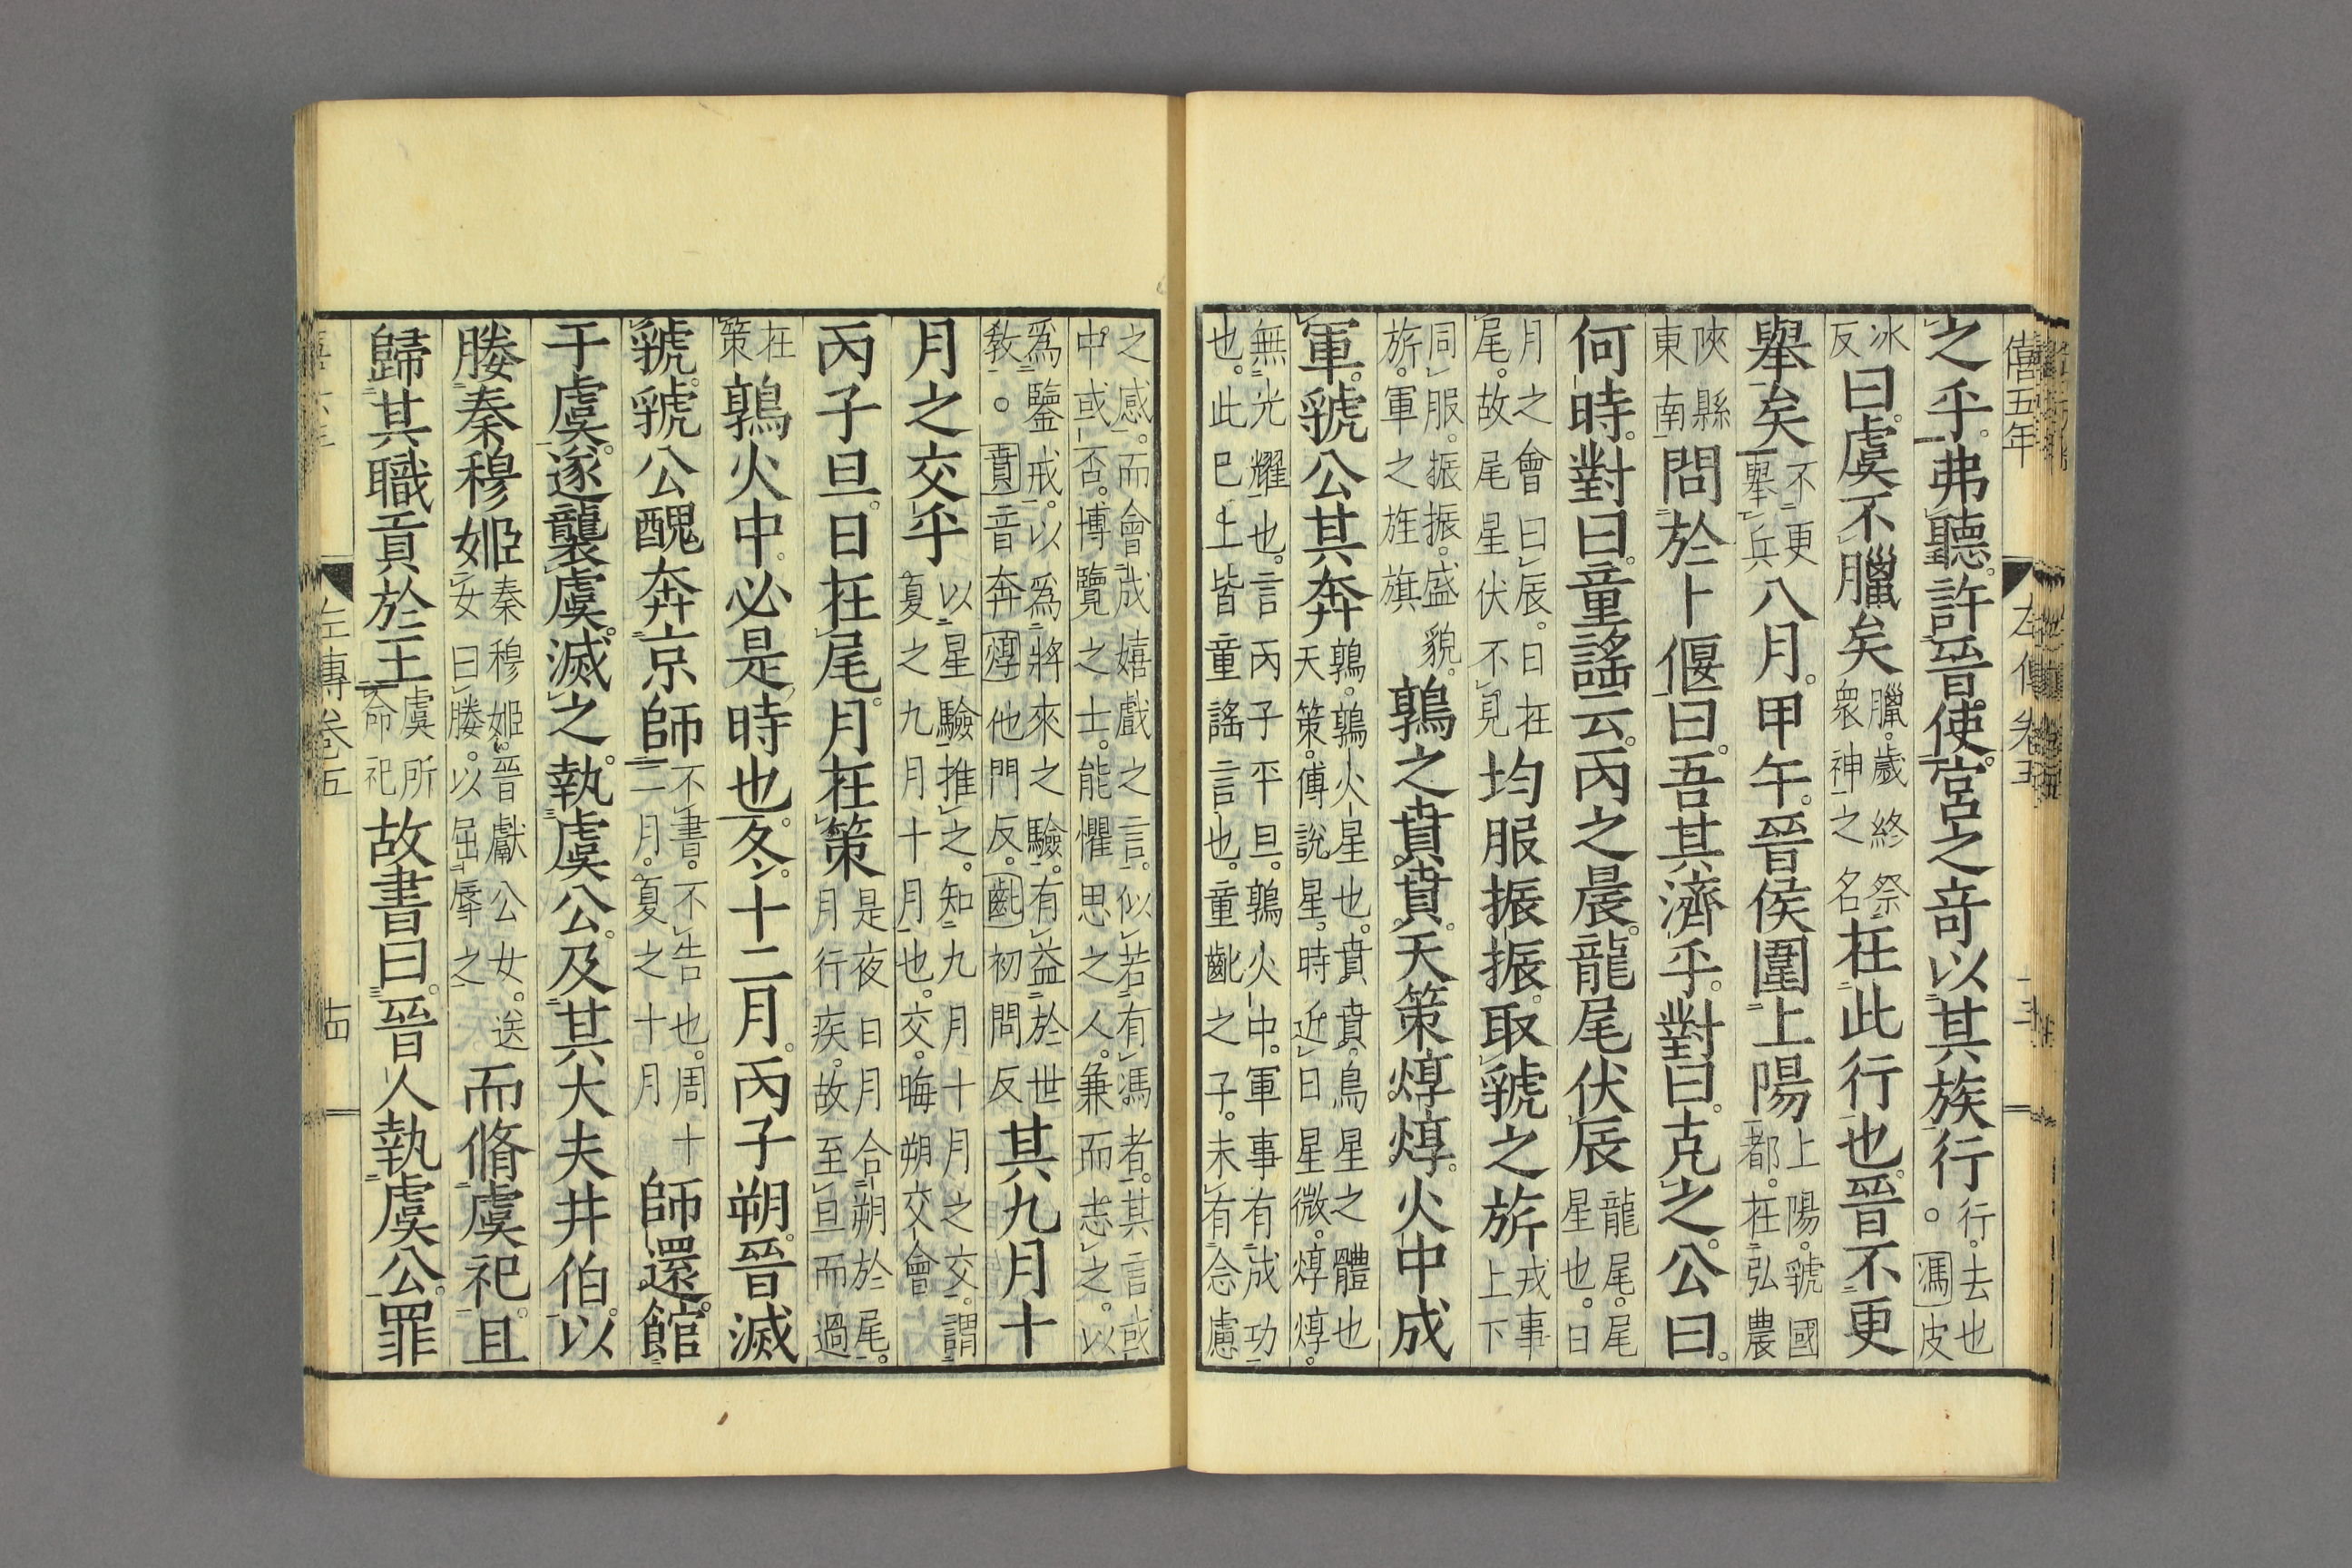 僖五年 左傳卷五 十三
之乎。弗聽。許晉使。宮之奇以其族行行。去也。馮皮
冰反曰。虞不臘矣臘。歲終祭衆神之名在此行也。晉不更
舉矣不更舉兵八月。甲午。晉侯圍上陽上陽。虢國都。在弘農
陝縣東南問於卜偃曰。吾其濟乎。對曰。克之。公曰。
何時。對曰。童謠云。丙之晨。龍尾伏辰龍尾。尾星也。日
月之會曰辰。日在尾。故尾星伏不見均服振振。取虢之旂戎事上下
同服。振振。盛貌。旂。軍之旌旗鶉之賁賁。天策焞焞。火中成
軍。虢公其奔鶉。鶉火星也。賁賁。鳥星之體也天策。傅說星。時近日星微。焞焞。
無光耀也。言丙子平旦。鶉火中。軍事有成功也。此巳上皆童謠言也。童齔之子。未有念慮
之感。而會成嬉戲之言。似若有馮者。其言或中。或否。博覽之士。能懼思之人。兼而志之。以
爲鑒戒。以爲將來之驗。有益於世敎。○賁音奔焞他門反。齔初問反其九月十
月之交乎以星驗推之。知九月十月之交。謂夏之九月十月也。交。晦朔交會
丙子旦。日在尾。月在策是夜日月合朔於尾。月行疾。故至旦而過
在策鶉火中。必是時也。冬。十二月。丙子朔。晉滅
虢。虢公醜奔京師不書。不告也。周十二月。夏之十月師還館
于虞。遂襲虞。滅之。執虞公。及其大夫井伯。以
媵秦穆姬秦穆姬。晉獻公女。送女曰媵。以屈辱之而脩虞祀。且
歸其職貢於王虞所命祀故書曰。晉人執虞公。罪
左傳卷五 十四